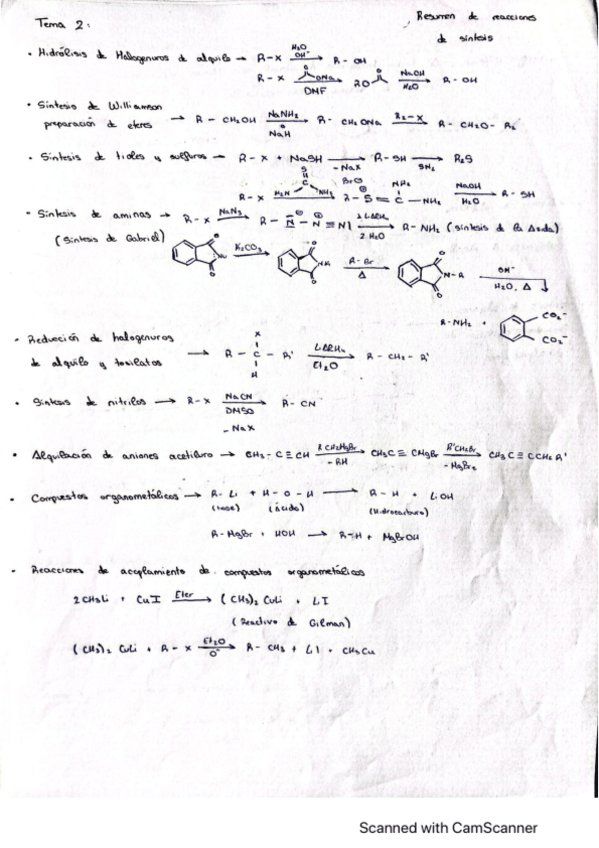 Tema 2:
Resumen de reacciones
de sintesis
• Hidrólisis de Halogenuros de alquilo → R-X H2O OH⁻ → R-OH
R-X ONa DMF → RO NaOH H2O → R-OH
• Síntesis de Williamson
preparación de eteres → R-CH2OH NaNH2 ó NaH → R-CH2ONa R2-X → R-CH2O-R2
• Sintesis de tioles y sulfuros → R-X + NaSH -NaX → R-SH SN2 → R2S
R-X H2N S C NH2 → R-S=C-NH2 NH2 NaOH H2O → R-SH
• Sintesis de aminas → R-X NaN3 → R-N-N≡N| 2. H2O → R-NH2 (síntesis de la Azida)
(Síntesis de Gabriel) K2CO3 → R-Br Δ → N-R OH⁻ H2O, Δ
R-NH2 + CO2⁻ CO2⁻
• Reducción de halogenuros
de alquilo y tosilatos → R-C-R' X H Et2O → R-CH2-R'
• Sintesis de nitrilos → R-X NaCN DMSO -NaX → R-CN
• Alquilación de aniones acetiluro → CH3-C≡CH RCH2MgBr -RH → CH3C≡CMgBr R'CH2Br -MgBr2 → CH3C≡CCH2R'
• Compuestos organometálicos → R-Li + H-O-H → R-H + LiOH
(base) (ácido) (Hidrocarburo)
R-MgBr + HOH → R-H + MgBrOH
• Reacciones de acoplamiento de compuestos organometálicos
2CH3Li + CuI Eter → (CH3)2CuLi + LI
(Reactivo de Gilman)
(CH3)2CuLi + R-X Et2O 0° → R-CH3 + LI + CH3Cu
Scanned with CamScanner